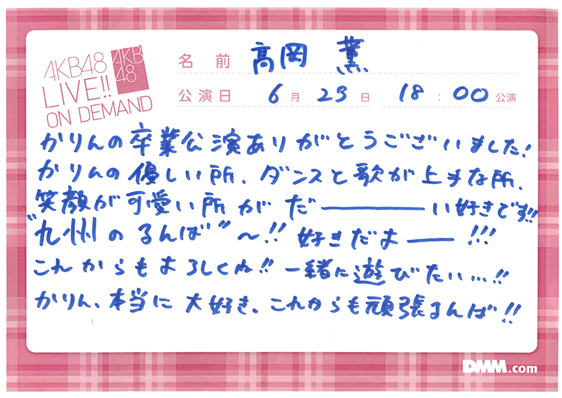 AKB48
LIVE!!
ON DEMAND
AKB
48
名前 高岡 薫
公演日 6月23日 18:00公演
かりんの卒業公演ありがとうございました!
かりんの優しい所、ダンスと歌が上手な所、
笑顔が可愛い所がだ――――い好きです!!
"九州のるんば"~!! 好きだよ――!!!
これからもよろしくね!! 一緒に遊びたい…!!
かりん、本当に大好き。これからも頑張るんば!!
DMM.com